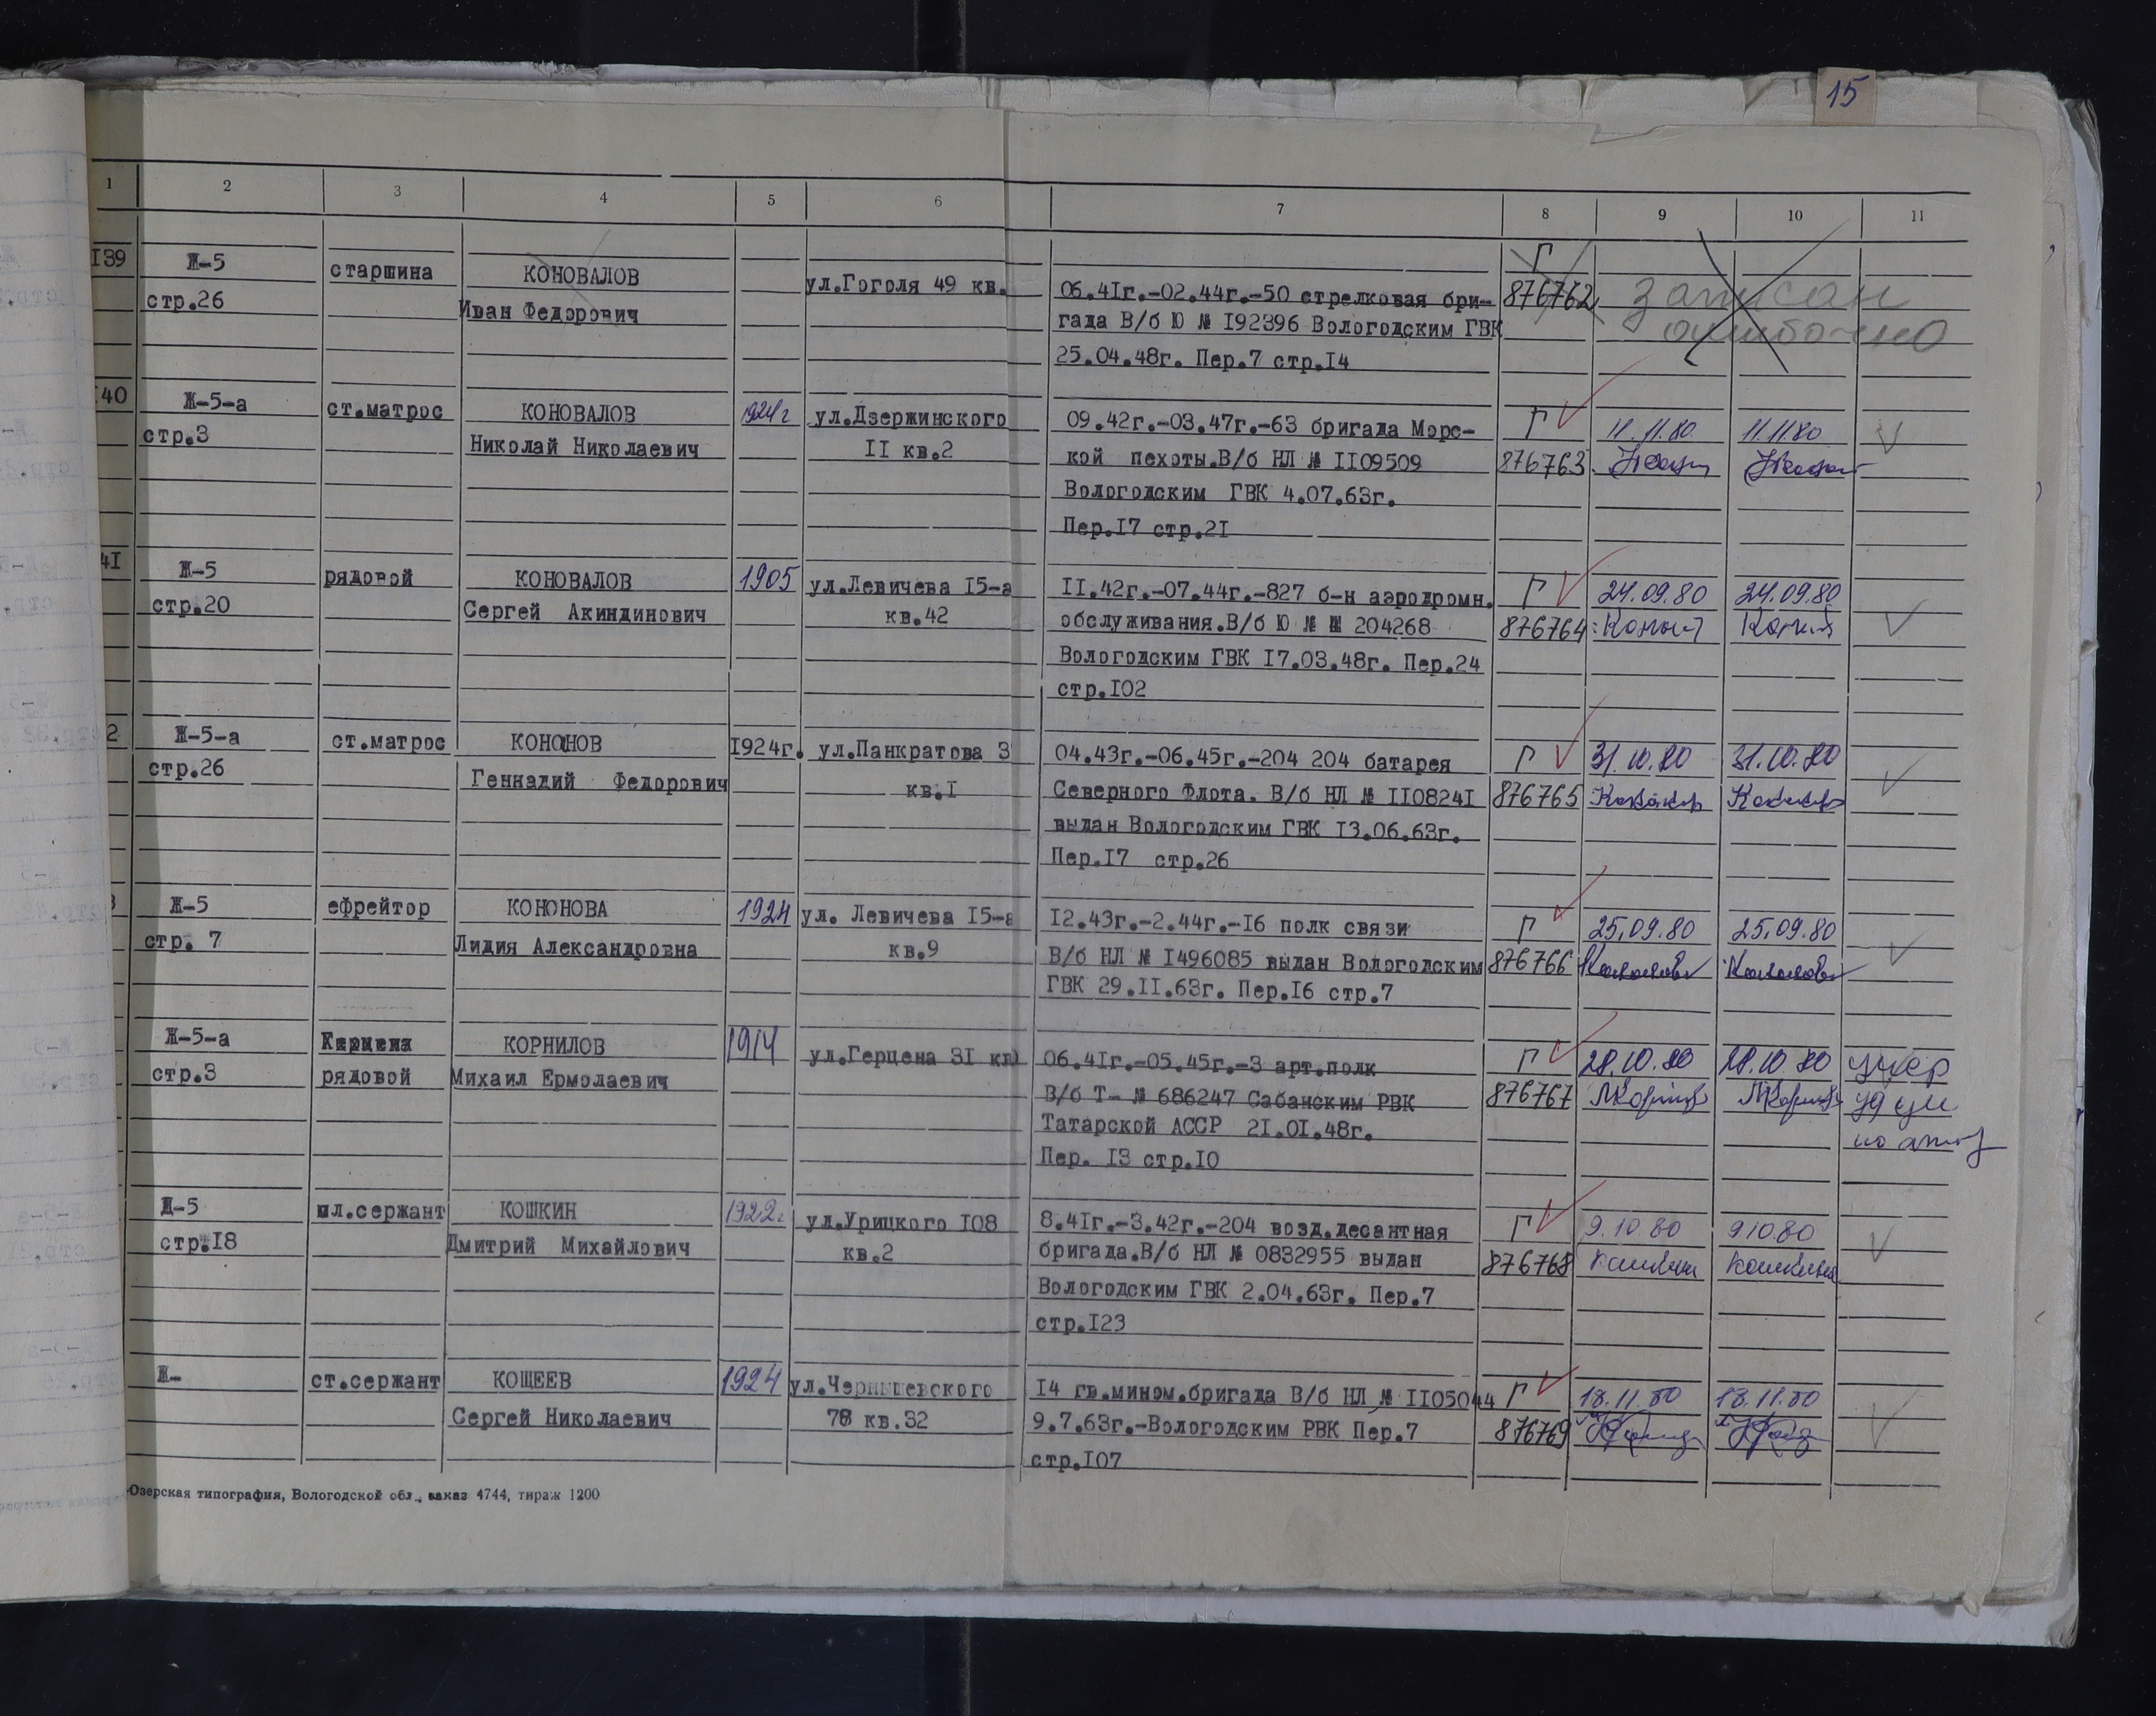 15
1 2 3 4 5 6 7 8 9 10 11
139 Ж-5 старшина КОНОВАЛОВ ул.Гоголя 49 кв. 06.41г.-02.44г.-50 стрелковая бри- Г
стр.26 Иван Федорович гада В/б Ю № 192396 Вологодским ГВК 876762 записан
25.04.48г. Пер.7 стр.14 ошибочно
40 Ж-5-а ст.матрос КОНОВАЛОВ 1924г ул.Дзержинского 09.42г.-03.47г.-63 бригада Морс- Г 11.11.80 11.11.80
стр.3 Николай Николаевич 11 кв.2 кой пехоты.В/б НЛ № 1109509 876763
Вологодским ГВК 4.07.63г.
Пер.17 стр.21
41 Ж-5 рядовой КОНОВАЛОВ 1905 ул.Левичева 15-а 11.42г.-07.44г.-827 б-н аэродромн. Г 24.09.80 24.09.80
стр.20 Сергей Акиндинович кв.42 обслуживания.В/б Ю № Ш 204268 876764
Вологодским ГВК 17.03.48г. Пер.24
стр.102
2 Ж-5-а ст.матрос КОНОНОВ 1924г. ул.Панкратова 3 04.43г.-06.45г.-204 204 батарея Г 31.10.80 31.10.80
стр.26 Геннадий Федорович кв.1 Северного Флота. В/б НЛ № 1108241 876765
выдан Вологодским ГВК 13.06.63г.
Пер.17 стр.26
3 Ж-5 ефрейтор КОНОНОВА 1924 ул. Левичева 15-а 12.43г.-2.44г.-16 полк связи Г 25.09.80 25.09.80
стр. 7 Лидия Александровна кв.9 В/б НЛ № 1496085 выдан Вологодским 876766
ГВК 29.11.63г. Пер.16 стр.7
Ж-5-а КОРНИЛОВ 1914 ул.Герцена 31 кв) 06.41г.-05.45г.-3 арт.полк Г 28.10.80 28.10.80 умер
стр.3 рядовой Михаил Ермолаевич В/б Т- № 686247 Сабанским РВК 876767
Татарской АССР 21.01.48г.
Пер. 13 стр.10
Д-5 мл.сержант КОШКИН 1922г ул.Урицкого 108 8.41г.-3.42г.-204 возд.десантная Г 9.10.80 9.10.80
стр.18 Дмитрий Михайлович кв.2 бригада.В/б НЛ № 0832955 выдан 876768 Кошкин Кошкина
Вологодским ГВК 2.04.63г. Пер.7
стр.123
Ж- ст.сержант КОЩЕЕВ 1924 ул.Чернышевского 14 гв.мином.бригада В/б НЛ № 1105044 Г 18.11.80 18.11.80
Сергей Николаевич 78 кв.32 9.7.63г.-Вологодским РВК Пер.7 876769
стр.107
Озерская типография, Вологодской обл., заказ 4744, тираж 1200